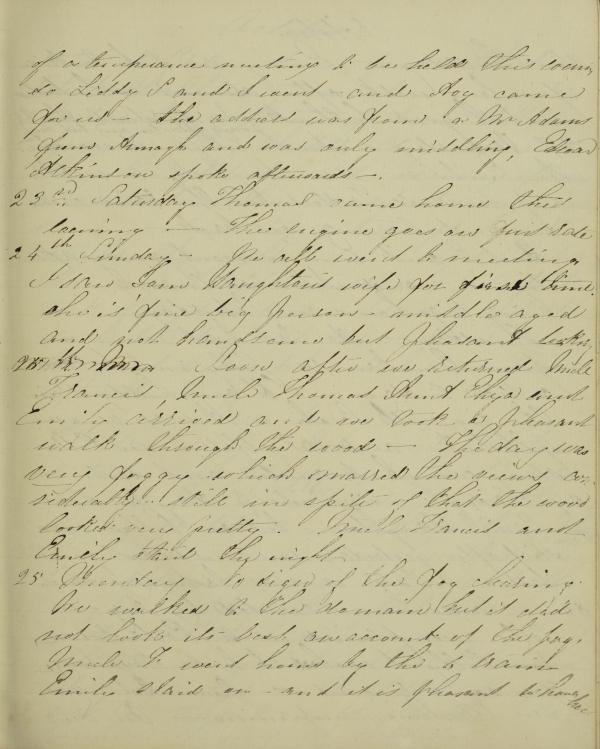 of a temperance meeting to be held this evening
so Liddy S and I went - and Hog came
for us - the address was from a Mr Adams
from Armagh and was only middling, Edward
Atkinson spoke afterwards -
23rd Saturday Thomas came home this
evening - The engine goes on first rate
24th Sunday - We all went to meeting
I saw Sam Haughton's wife for first time.
she is fine big person - middle aged
and not handsome but pleasant looking
Soon after we returned Uncle
Francis, Uncle Thomas Aunt Eliza and
Emily arrived and we took a pleasant
walk through the wood - The day was
very foggy which marred the views con-
siderably still in spite of that the wood
looked very pretty. Uncle Francis and
Emily staid the night
25 Monday No sign of the fog clearing.
We walked to the domain but it did
not look its best on account of the fog.
Uncle F went home by the 6 train
Emily staid on - and it is pleasant to have her